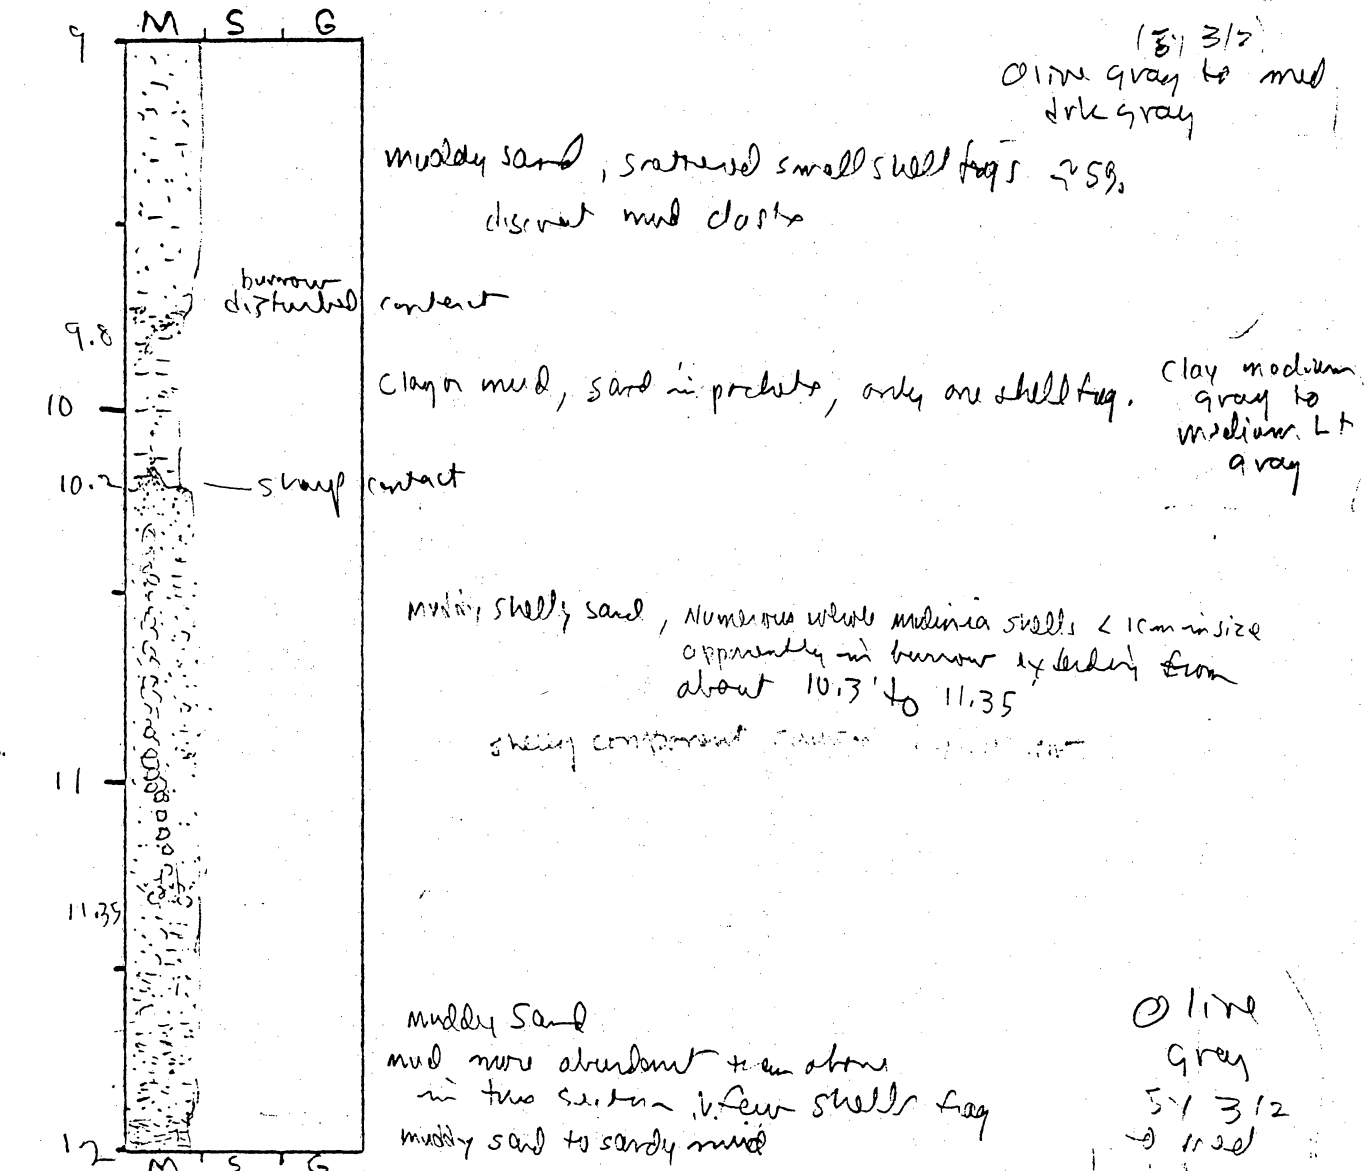 M S G
9
(5y 3/2)
Olive gray to med
drk gray
muddy sand, scattered small shell frags ~5%
discreet mud clasts
burrow
disturbed contact
9.8
clay or mud, sand in pockets, only one shell frag.
clay medium
gray to
medium Lt
gray
10
10.2
sharp contact
muddy shelly sand, Numerous whole mulinia shells < 1cm in size
apparently in burrow extending from
about 10.3' to 11.35'
shelly component
11
11.35
muddy sand
mud more abundant than above
in this section, v. few shells frag
muddy sand to sandy mud
Olive
gray
5Y 3/2
to med
12
M S G